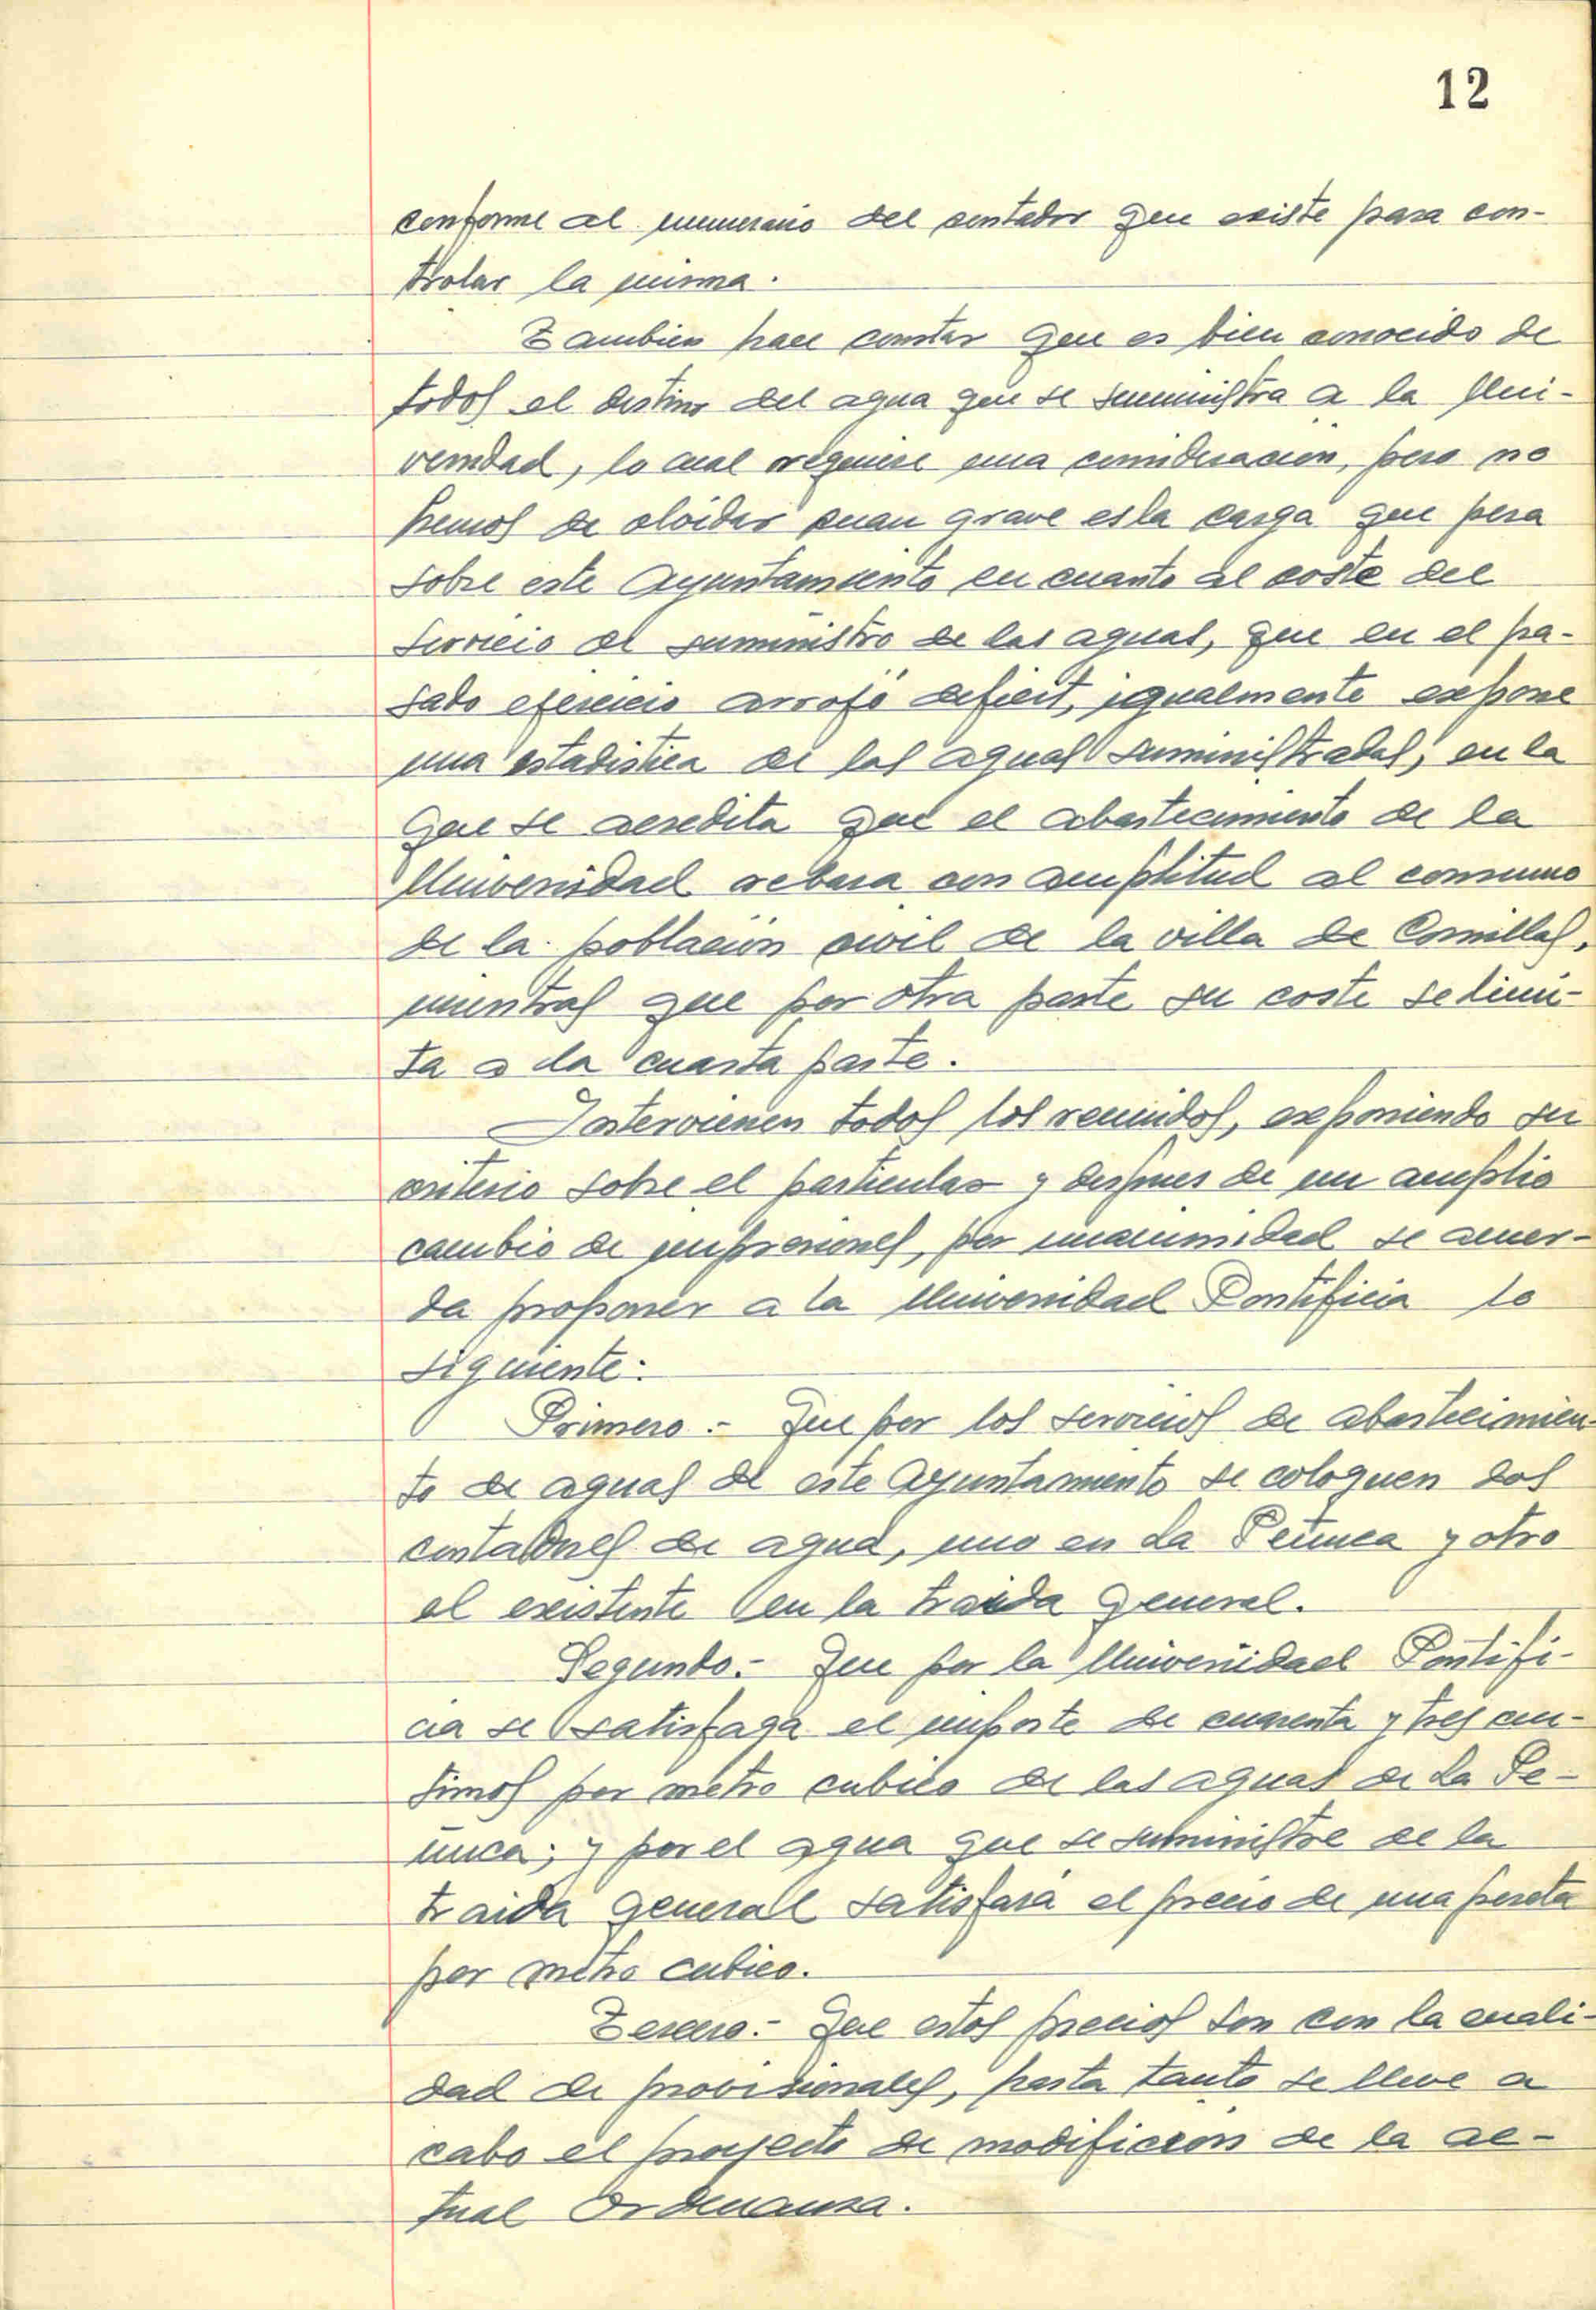 12
conforme al numerario del contador que existe para con-
trolar la misma.
Tambien hace constar que es bien conocido de
todos el destino del agua que se summistra a la Uni-
versidad, lo cual requiere una consideracion, pero no
hemos de olvidar cuan grave es la carga que pesa
sobre este Ayuntamiento en cuanto al coste del
servicio de suministro de las aguas, que en el pa-
sado ejercicio arrojó deficit, igualmente expone
una estadistica de las aguas suministradas, en la
que se acredita que el abastecimiento de la
Universidad rebasa con amplitud al consumo
de la población civil de la villa de Comillas,
mientras que por otra parte su coste se limi-
ta a la cuarta parte.
Intervienen todos los reunidos, exponiendo su
criterio sobre el particular y despues de un amplio
cambio de impresiones, por unanimidad se acuer-
da proponer a la Universidad Pontificia lo
siguiente:
Primero.- Que por los servicios de abastecimien-
to de aguas de este Ayuntamiento se coloquen dos
contadores de agua, uno en La Peñuca y otro
el existente en la traida general.
Segundo.- Que por la Universidad Pontifi-
cia se satisfaga el importe de cuarenta y tres cen-
timos por metro cubico de las aguas de La Pe-
ñuca; y por el agua que se suministre de la
traida general satisfará el precio de una peseta
por metro cubico.
Tercero.- Que estos precios son con la cuali-
dad de provisionales, hasta tanto se lleve a
cabo el proyecto de modificción de la ac-
tual Ordenanza.